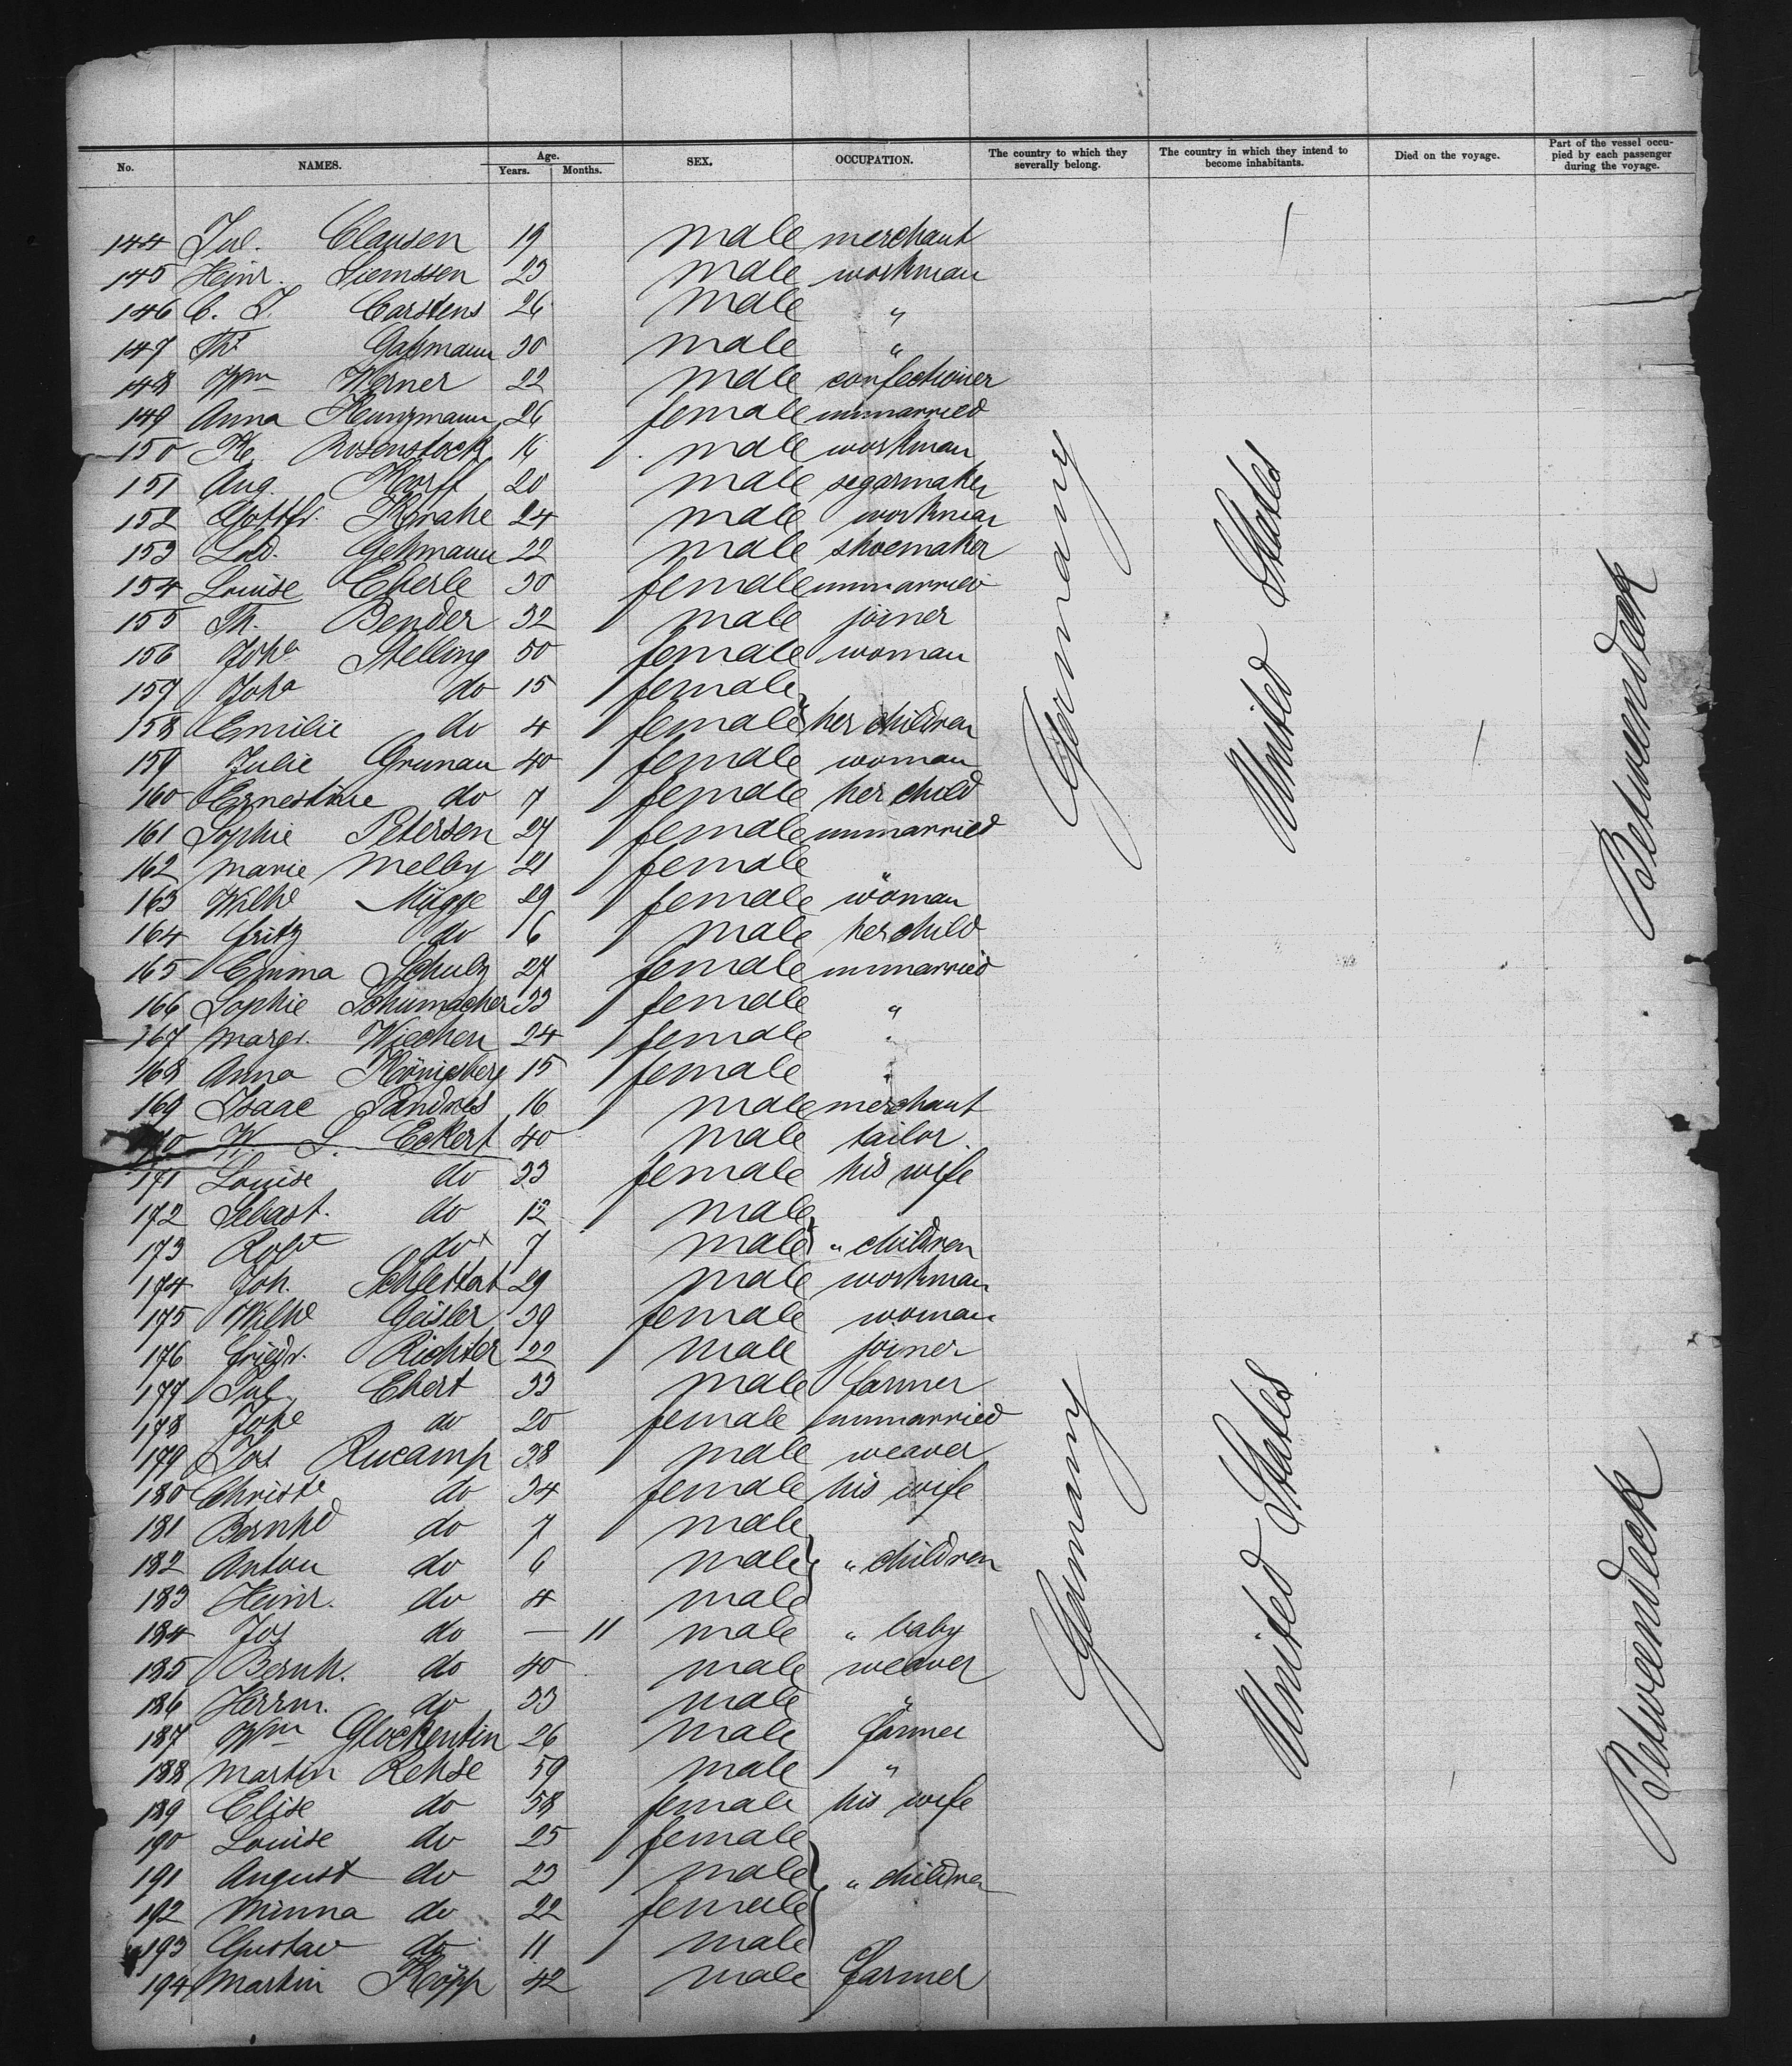 No. NAMES. Age. Years. Months. SEX. OCCUPATION. The country to which they severally belong. The country in which they intend to become inhabitants. Died on the voyage. Part of the vessel occupied by each passenger during the voyage.
144 Jul. Clausen 19 male merchant
145 Heinr. Siemssen 23 male workman
146 C. J. Carstens 26 male "
147 Gahmann 30 male "
148 Wm Werner 22 male confectioner
149 Anna Kunzmann 26 female unmarried
150 Rosenstock 16 male workman
151 Aug. Korff 20 male segarmaker
152 Gottfr. 24 male workman
153 Lud. Gehmann 22 male shoemaker
154 Louise Eberle 30 female unmarried
155 Th. Bender 32 male joiner
156 Joha Stelling 50 female woman
157 Joha do 15 female
158 Emilie do 4 female } her children
159 Julie Grunau 40 female woman
160 Ernestine do 7 female her child
161 Sophie Petersen 27 female unmarried
162 Marie Melby 21 female "
163 Wilhe Mügge 29 female woman
164 Fritz do 6 male her child
165 Emma Schulz 27 female unmarried
166 Sophie Schumacher 33 female "
167 Margr. Wiechen 24 female "
168 Anna Königsberg 15 female "
169 Isaac 16 male merchant
170 W. L. Eckert 40 male tailor
171 Louise do 33 female his wife
172 Sebast. do 12 male
173 Robt do 7 male } " children
174 Joh. Schlettat 29 male workman
175 Wilhe Geisler 39 female woman
176 Friedr. Richter 22 male joiner
177 Jul. Ebert 33 male farmer
178 Johe do 20 female unmarried
179 Jos. Rucamp 38 male weaver
180 Christe do 34 female his wife
181 Bernhd do 7 male
182 Anton do 6 male } " children
183 Heinr. do 4 male
184 Jos do — 11 male " baby
185 Bernh. do 40 male weaver
186 Herrm. do 33 male "
187 Wm Glockentin 26 male farmer
188 Martin Rehse 59 male "
189 Elise do 58 female his wife
190 Louise do 25 female
191 August do 23 male } " children
192 Minna do 22 female
193 Gustav do 11 male
194 Martin Köpp 42 male farmer
Germany
United States
Betweendeck
Germany
United States
Betweendeck